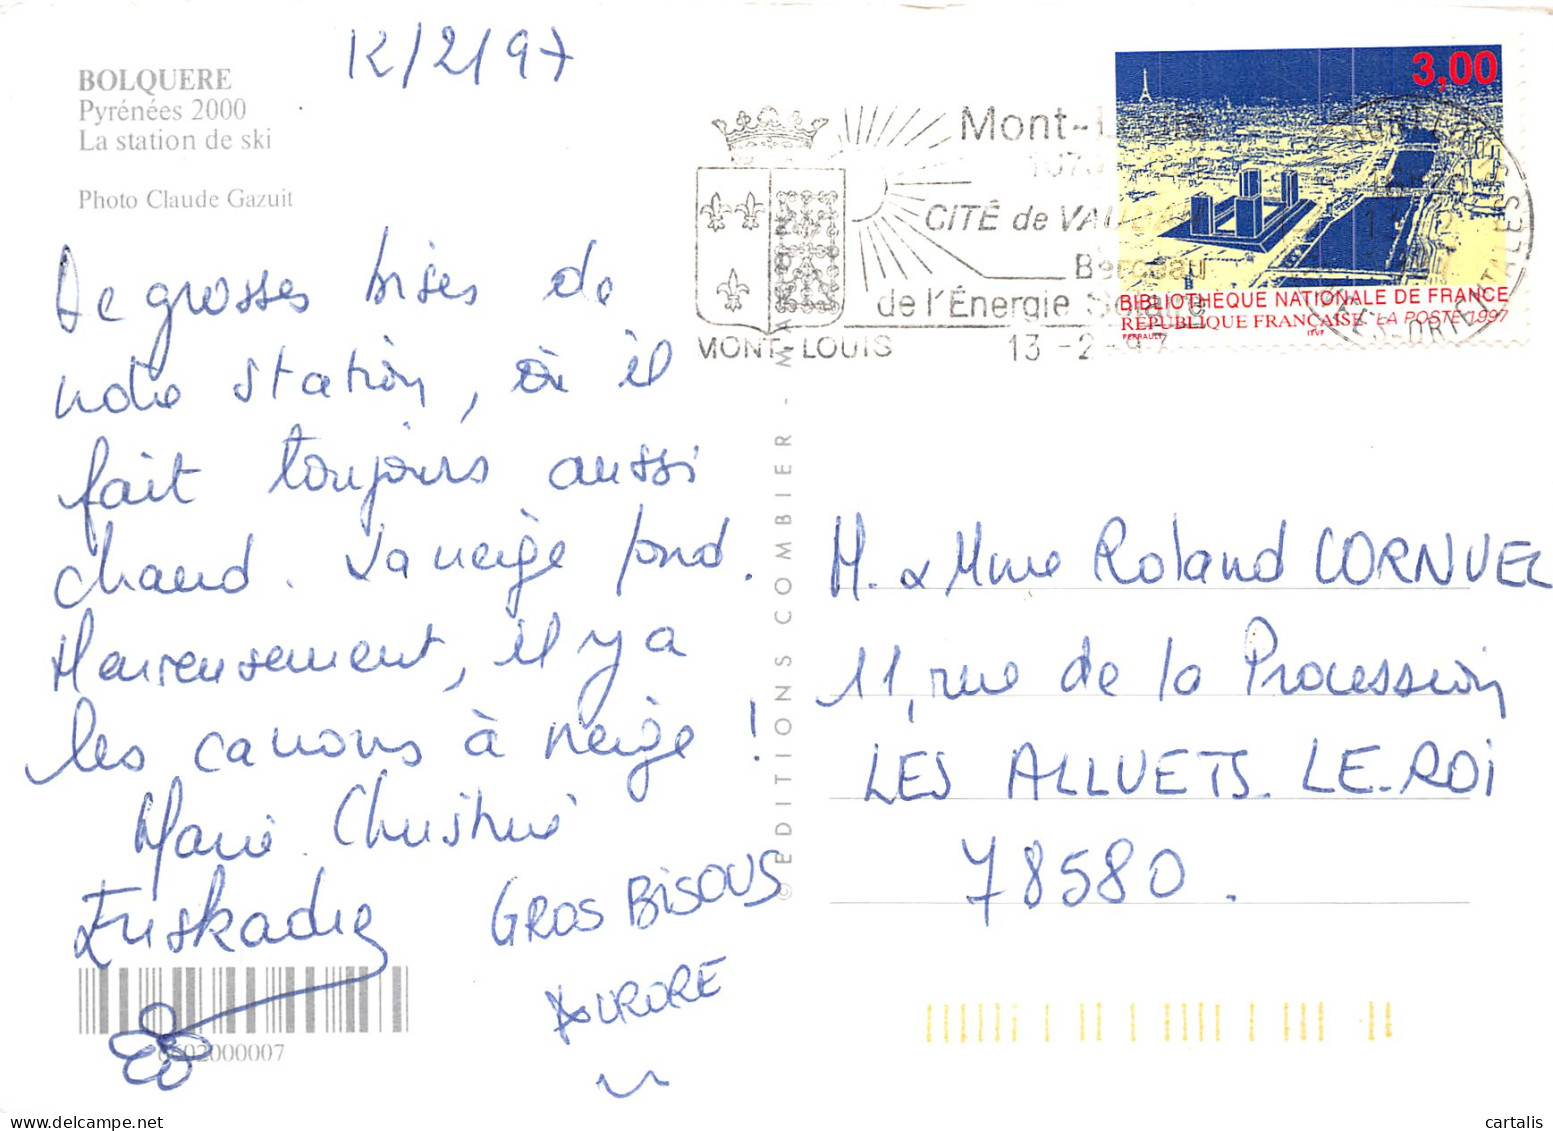 BOLQUERE
Pyrénées 2000
La station de ski
Photo Claude Gazuit
12/2/97
De grosses bises de
notre station, où il
fait toujours aussi
chaud. La neige fond.
Heureusement, il y a
les canons à neige !
Marie Christine
GROS BISOUS
AURORE
0602000007
© EDITIONS COMBIER - MA
Mont-Louis
CITÉ de VAUBAN
Berceau
de l'Énergie Solaire
MONT-LOUIS
13 -2 -97
3,00
BIBLIOTHÈQUE NATIONALE DE FRANCE
RÉPUBLIQUE FRANÇAISE LA POSTE 1997
PERRAULT ITVF
M. & Mme Roland CORNUEL
11, rue de la Procession
LES ALLUETS. LE. ROI
78580.